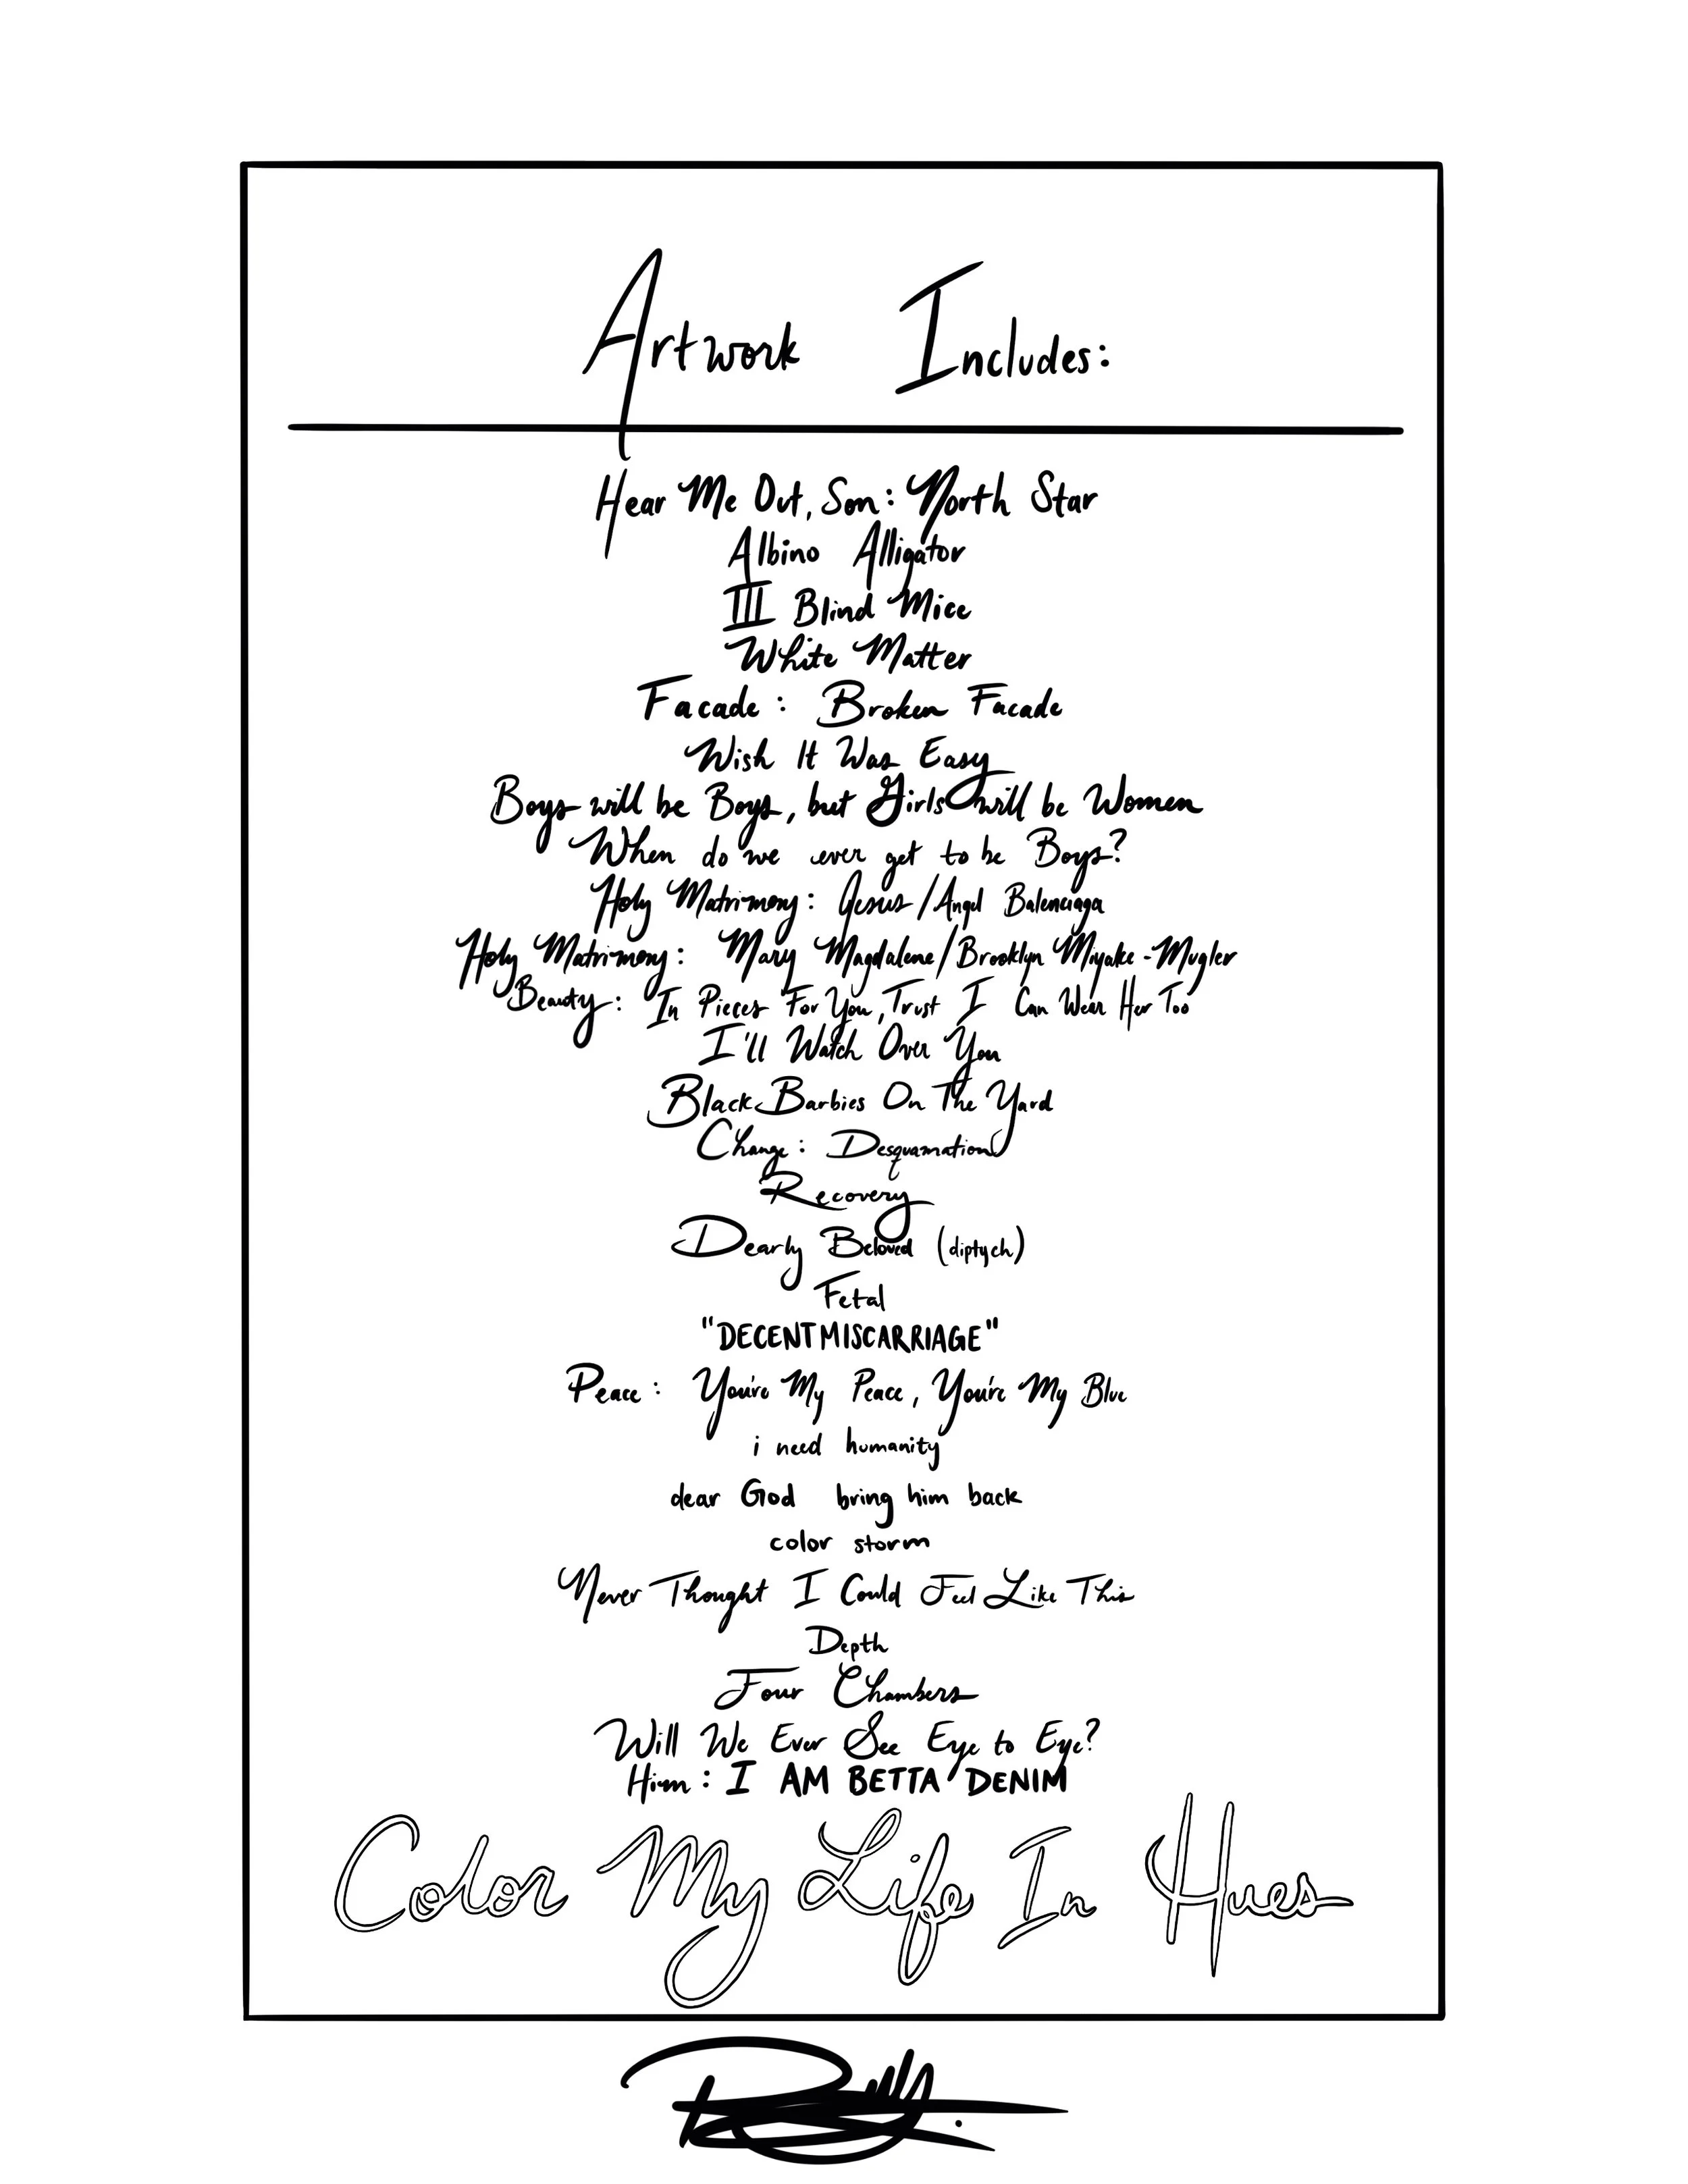 Artwork Includes:
Hear Me Out, Son: North Star
Albino Alligator
III Blind Mice
White Matter
Facade: Broken Facade
Wish It Was Easy
Boys will be Boys, but Girls will be Women
When do we ever get to be Boys?
Holy Matrimony: Jesus/Angel Balenciaga
Holy Matrimony: Mary Magdalene/Brooklyn Miyake-Mugler
Beauty: In Pieces For You, Trust I Can Wear Her Too
I'll Watch Over You
Black Barbies On The Yard
Change: Desquamation
Recovery
Dearly Beloved (diptych)
Fetal
"DECENTMISCARRIAGE"
Peace: You're My Peace, You're My Blue
i need humanity
dear God bring him back
color storm
Never Thought I Could Feel Like This
Depth
Four Chambers
Will We Ever See Eye to Eye?
Him: I AM BETTA DENIM
Color My Life In Hues